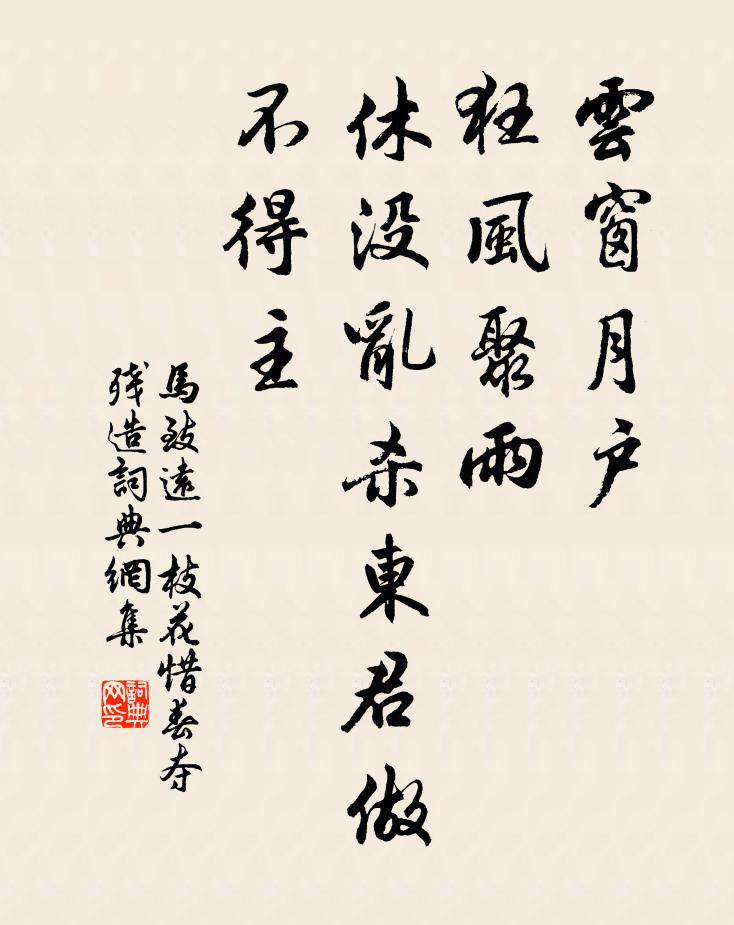 雲窗月户
狂風聚雨
休没亂杀東君做
不得主
馬致遠一枝花惜春夺
残造詞典網集
詞典网印